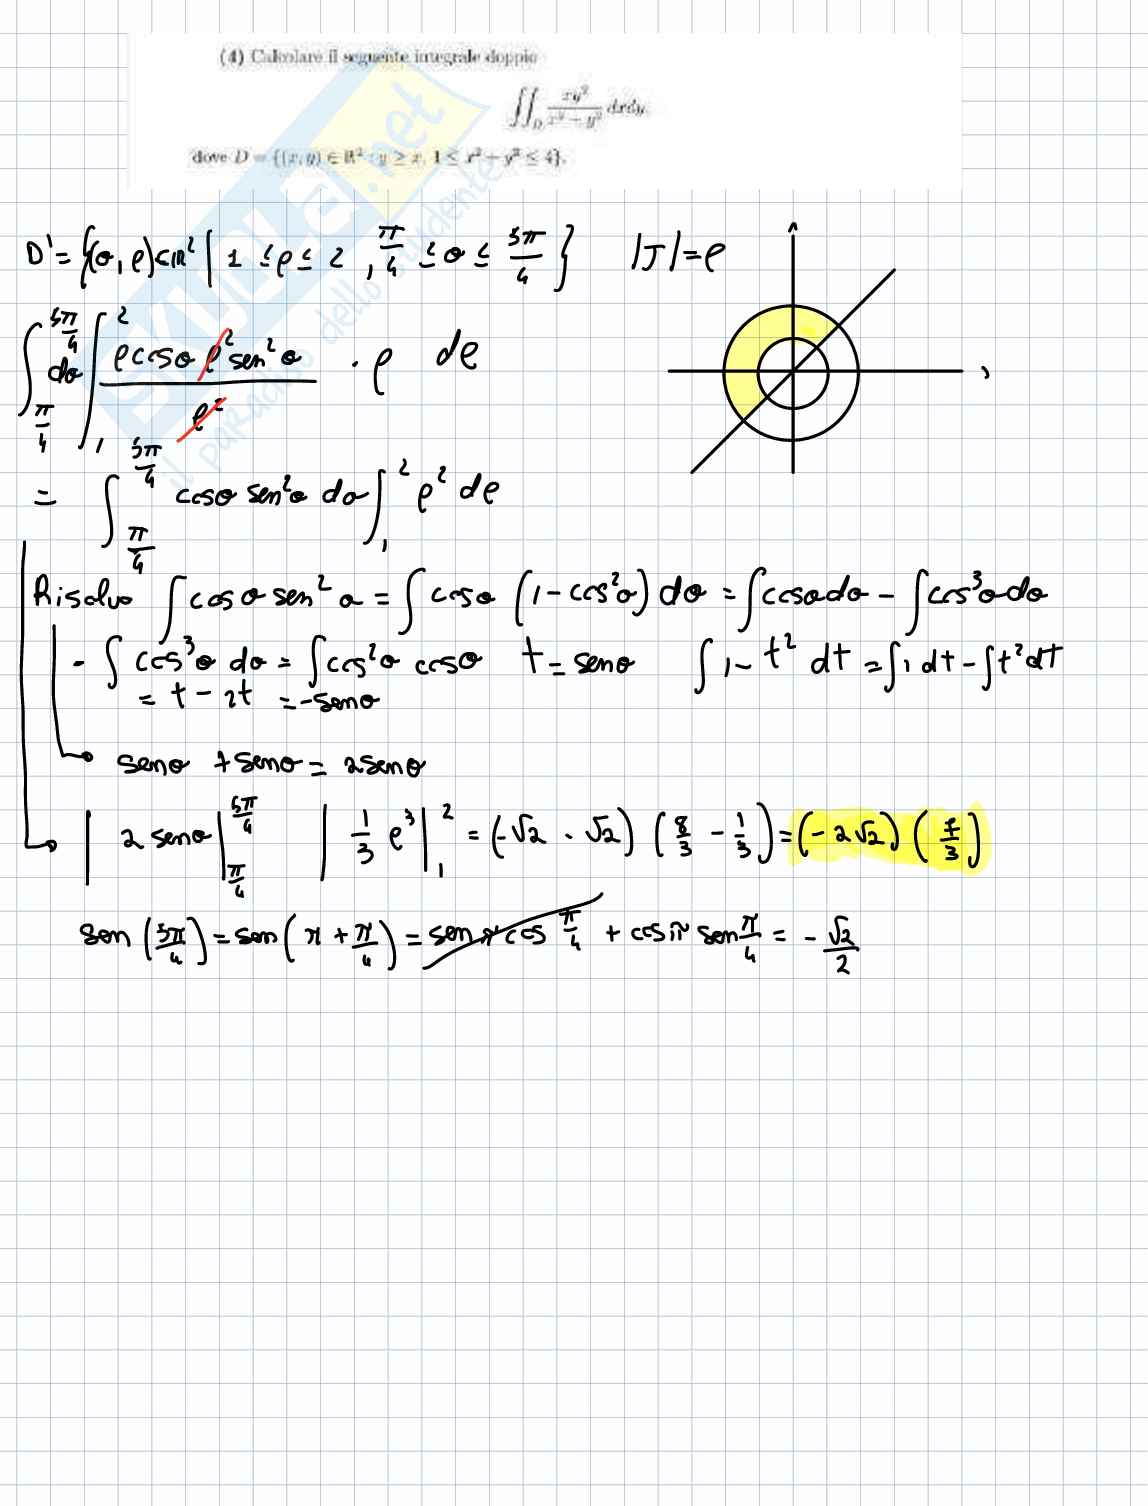 (4) Calcolare il seguente integrale doppio
∬_D xy²/(x²+y²) dxdy,
dove D = {(x,y) ∈ ℝ² : y ≥ x, 1 ≤ x² + y² ≤ 4}.
SKUOLA.net
il paradiso dello studente
D' = {(θ, ρ) ∈ ℝ² | 1 ≤ ρ ≤ 2, π/4 ≤ θ ≤ 5π/4} |J| = ρ
∫_{π/4}^{5π/4} dθ ∫_1^2 (ρ cosθ ρ² sen²θ)/ρ² · ρ dρ
= ∫_{π/4}^{5π/4} cosθ sen²θ dθ ∫_1^2 ρ² dρ
Risolvo ∫ cosθ sen²θ = ∫ cosθ (1 - cos²θ) dθ = ∫ cosθ dθ - ∫ cos³θ dθ
- ∫ cos³θ dθ = ∫ cos²θ cosθ t = senθ ∫ 1 - t² dt = ∫ 1 dt - ∫ t² dt
= t - 2t = -senθ
senθ + senθ = 2senθ
| 2 senθ |_{π/4}^{5π/4} | 1/3 ρ³ |_1^2 = (-√2 - √2) (8/3 - 1/3) = (-2√2) (7/3)
sen (5π/4) = sen (π + π/4) = sen π cos π/4 + cos π sen π/4 = - √2/2